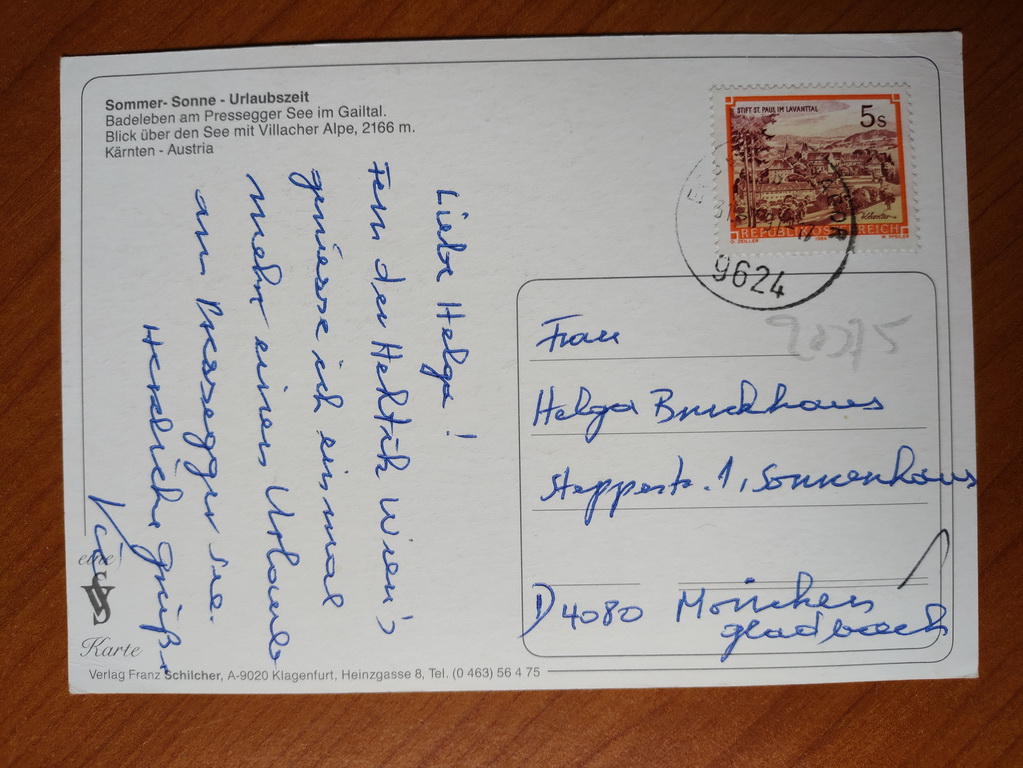 Sommer- Sonne - Urlaubszeit
Badeleben am Pressegger See im Gailtal.
Blick über den See mit Villacher Alpe, 2166 m.
Kärnten - Austria
Liebe Helga!
Fern der Hektik Wien's
geniesse ich einmal
mehr einen Urlaub
am Pressegger See.
Herzliche Grüße
STIFT ST. PAUL IM LAVANTTAL
5s
Kärnten
REPUBLIK ÖSTERREICH
1984
9624
Frau
Helga Bruckhaus
Steppestr. 1, Sonnenhaus
D 4080 Mönchen
gladbach
eine
Karte
Verlag Franz Schilcher, A-9020 Klagenfurt, Heinzgasse 8, Tel. (0 463) 56 4 75